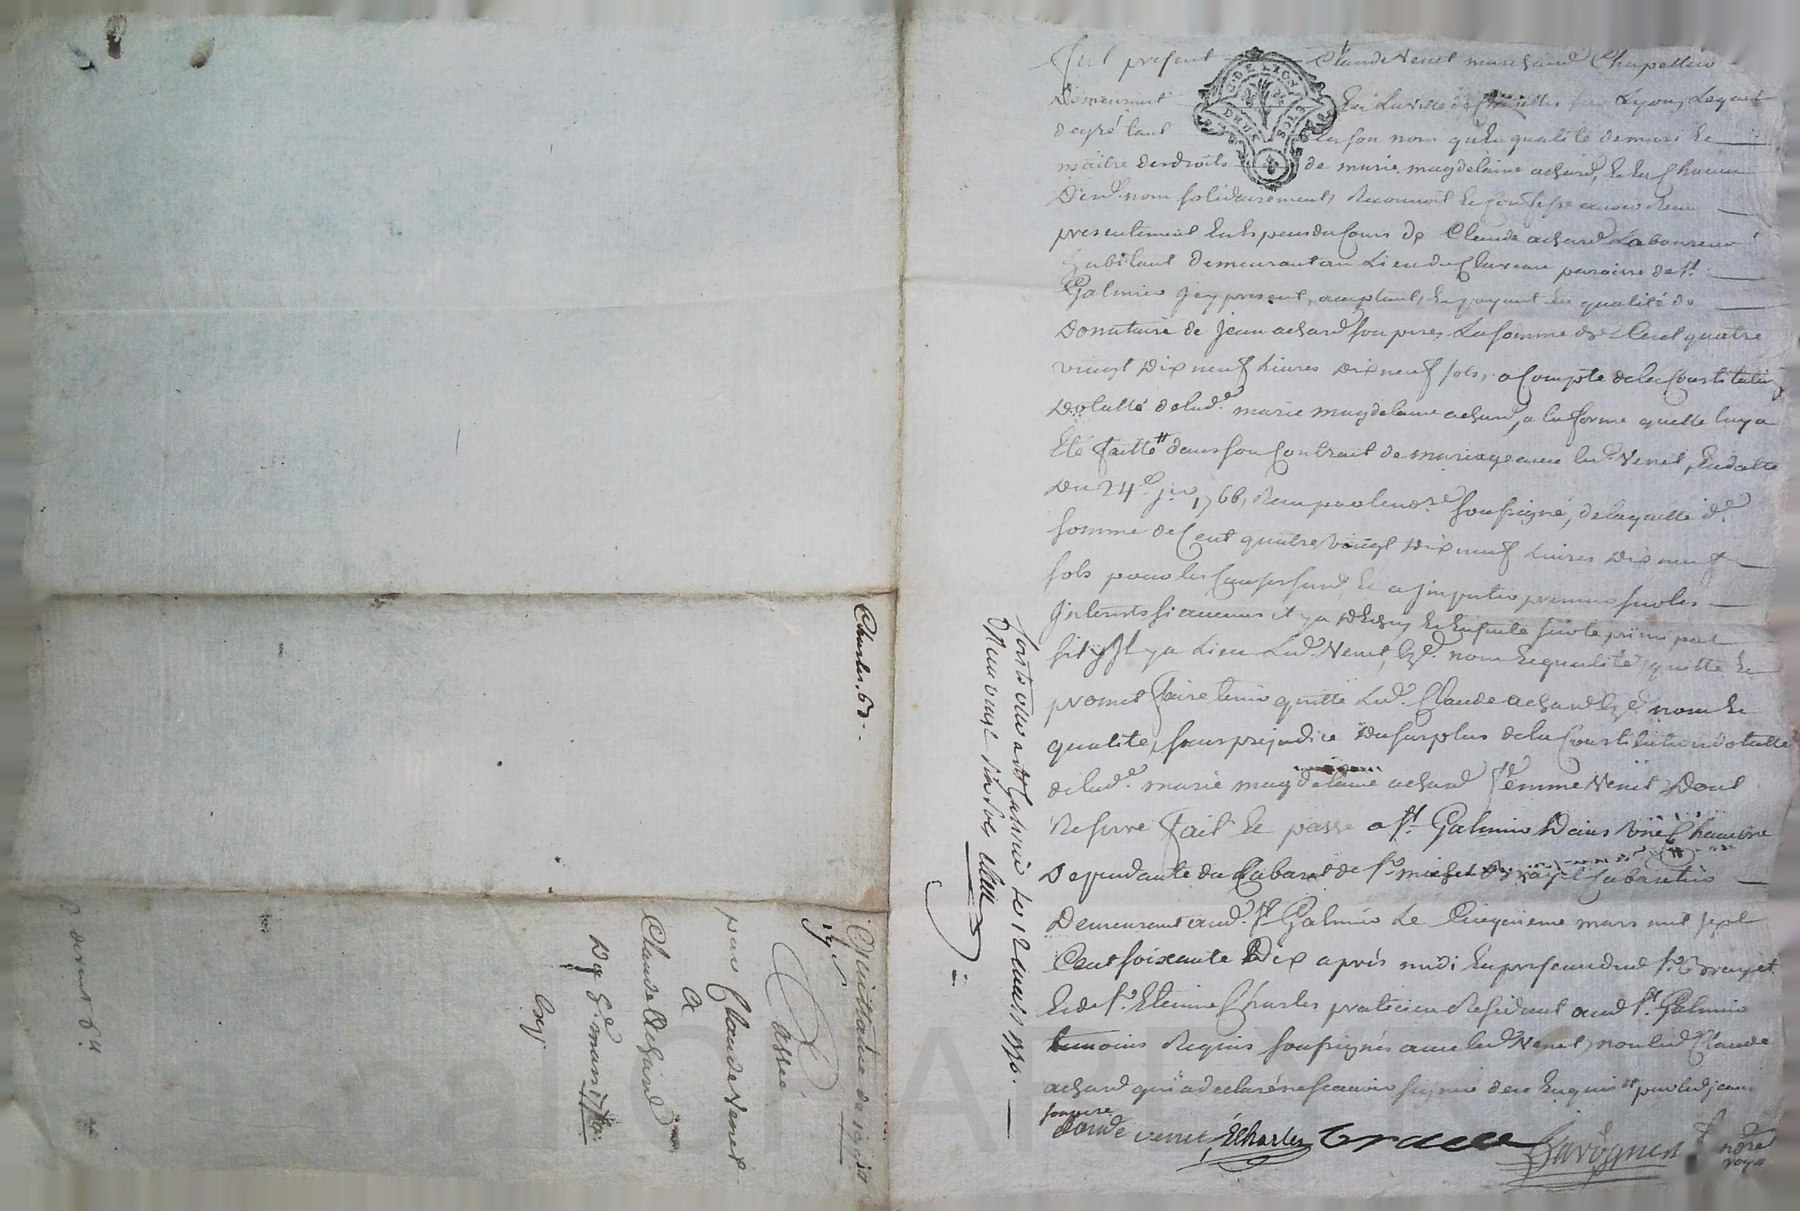 Fut present Claude Venet marchand Chapellier
Demeurant En la ville de Lyon, Lequel
degré tant En son nom qu'En qualité de mari Et
maitre des droits de marie magdelaine achard, Et En Chacun
Desd. nom solidairement, Reconnoit Et Confesse avoir Reçu
presentement Et Especes du Cours de Claude achard Laboureur
habitant demeurant au Lieu du Claveau paroisse de St.
Galmier Jcy present, acceptant, Et payant En qualité de
Donnataire de Jean achard son pere, La somme de Cent quatre
vingt Dix neuf Livres Dix neuf sols, a Compte de la Constitution
Dotalle de lad. marie magdelaine achard, a la forme quelle luy a
Eté faitte dans son Contrait de mariage avec led. Venet, En datte
Du 24e. 1766, Reçu par le nore. soussigné, de laquelle de.
somme de Cent quatre vingt Dix neuf Livres Dix neuf
sols pour les Causes susd. Et a Jmputer premier sur les
Jnterests si aucuns il y a Et Ensuite sur le principal
sil y a Lieu Led. Venet, Esd. nom Et qualité, quitte Et
promet faire tenir quitte Led. Claude achard Esd. nom Et
qualité, sans prejudice Du surplus de la Constitution dotalle
de lad. marie magdelaine achard femme Venet Dont
Reserve fait Et passé a St. Galmier Dans une Chambre
Dependante du Cabaret de Sr. michel Cabaretier
Demeurant aud. St. Galmier Le Cinquieme mars mil sept
Cent soixante Dix après midi En presence dud. Sr.
Et de Sr. Etienne Charles praticien Residant aud. St. Galmier
temoins Requis soussignés avec led. Venet, non led. Claude
achard qui a declaré ne scavoir signer de ce Enquis par led. jean
son pere
Claude venet ECharles
nore
royal
Controllé a St Galmier Le 12 mars 1770.
Reçu vingt six sols
Charles. 60.
Quittance de 199# 19 s
passée
par Claude Venet
A
Claude Achard
Du 5e. mars 1770.
Exp.